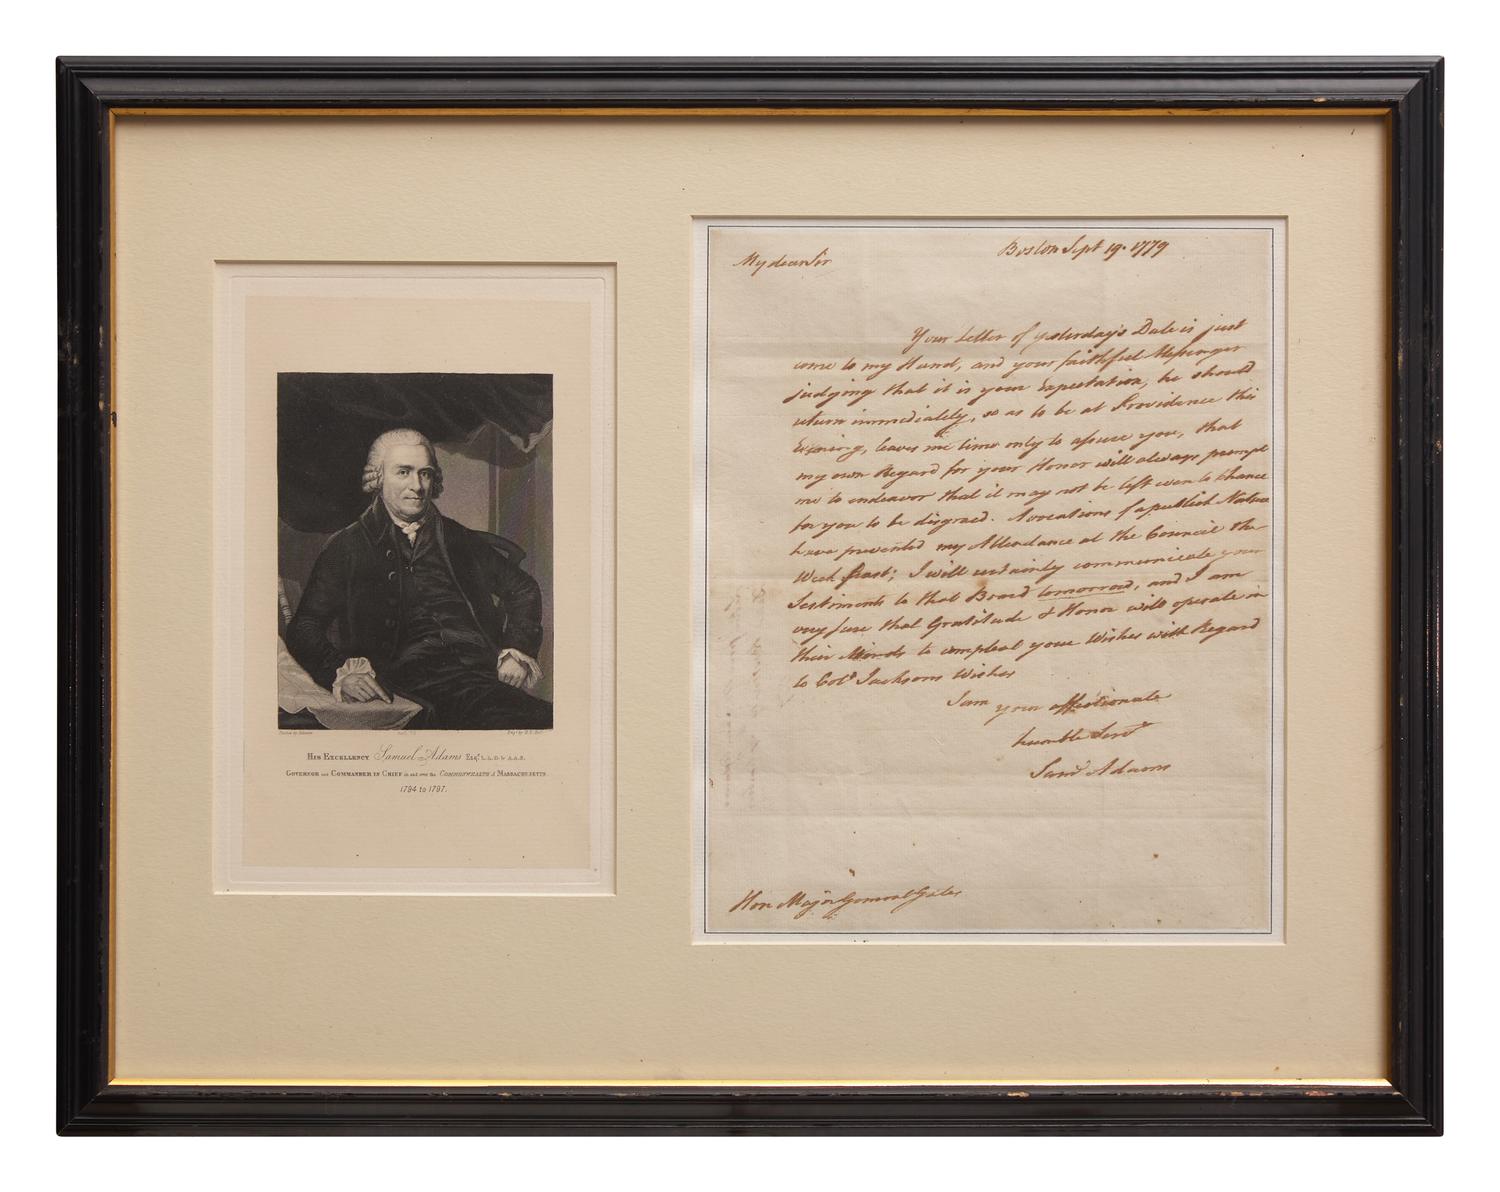 His Excellency Samuel Adams Esqr. L.L.D. & A.A.S.
Governor and Commander in Chief in and over the Commonwealth of Massachusetts
1794 to 1797.
Boston Sept 19. 1779
My dear Sir
Your Letter of yesterday's Date is just
come to my Hand, and your faithful Messenger
judging that it is your Expectation, he should
return immediately, so as to be at Providence this
Evening, leaves me time only to assure you, that
my own Regard for your Honor will always prompt
me to endeavor that it may not be left even to chance
for you to be disgracd. Avocations of a publick Nature
have prevented my Attendance at the Council the
Week past; I will certainly communicate your
Sentiments to that Board tomorrow, and I am
very sure that Gratitude & Honor will operate in
their Minds to compleat your Wishes with Regard
to Colo Jacksons Wishes
I am your affectionate
humble Servt
Saml Adams
Hon Major General Gates